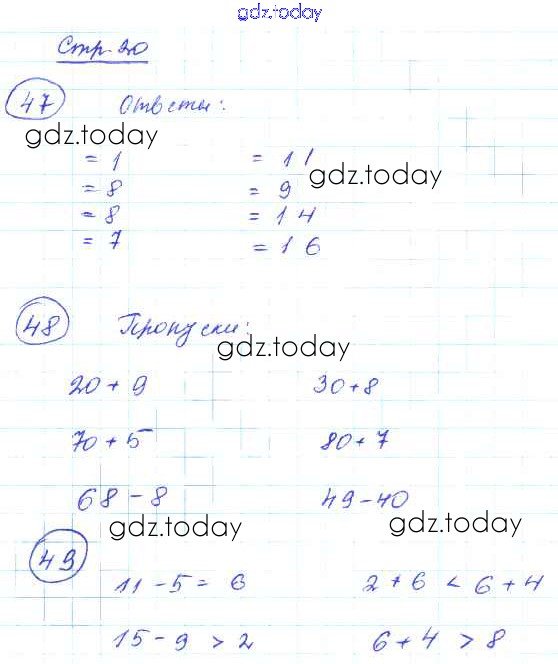 gdz.today
Стр. 20
47 Ответы:
gdz.today
= 1 = 11
gdz.today
= 8 = 9
= 8 = 14
= 7 = 16
48 Пропуски:
gdz.today
20 + 9 30 + 8
70 + 5 80 + 7
68 - 8 49 - 40
gdz.today gdz.today
49
11 - 5 = 6 2 + 6 < 6 + 4
15 - 9 > 2 6 + 4 > 8